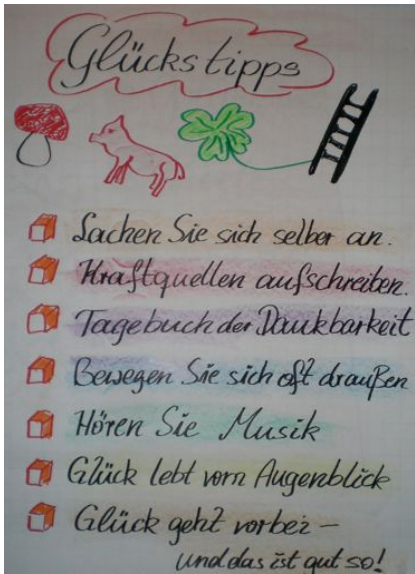 Glückstipps
Lachen Sie sich selber an.
Kraftquellen aufschreiben.
Tagebuch der Dankbarkeit
Bewegen Sie sich oft draußen
Hören Sie Musik
Glück lebt vom Augenblick
Glück geht vorbei –
und das ist gut so!